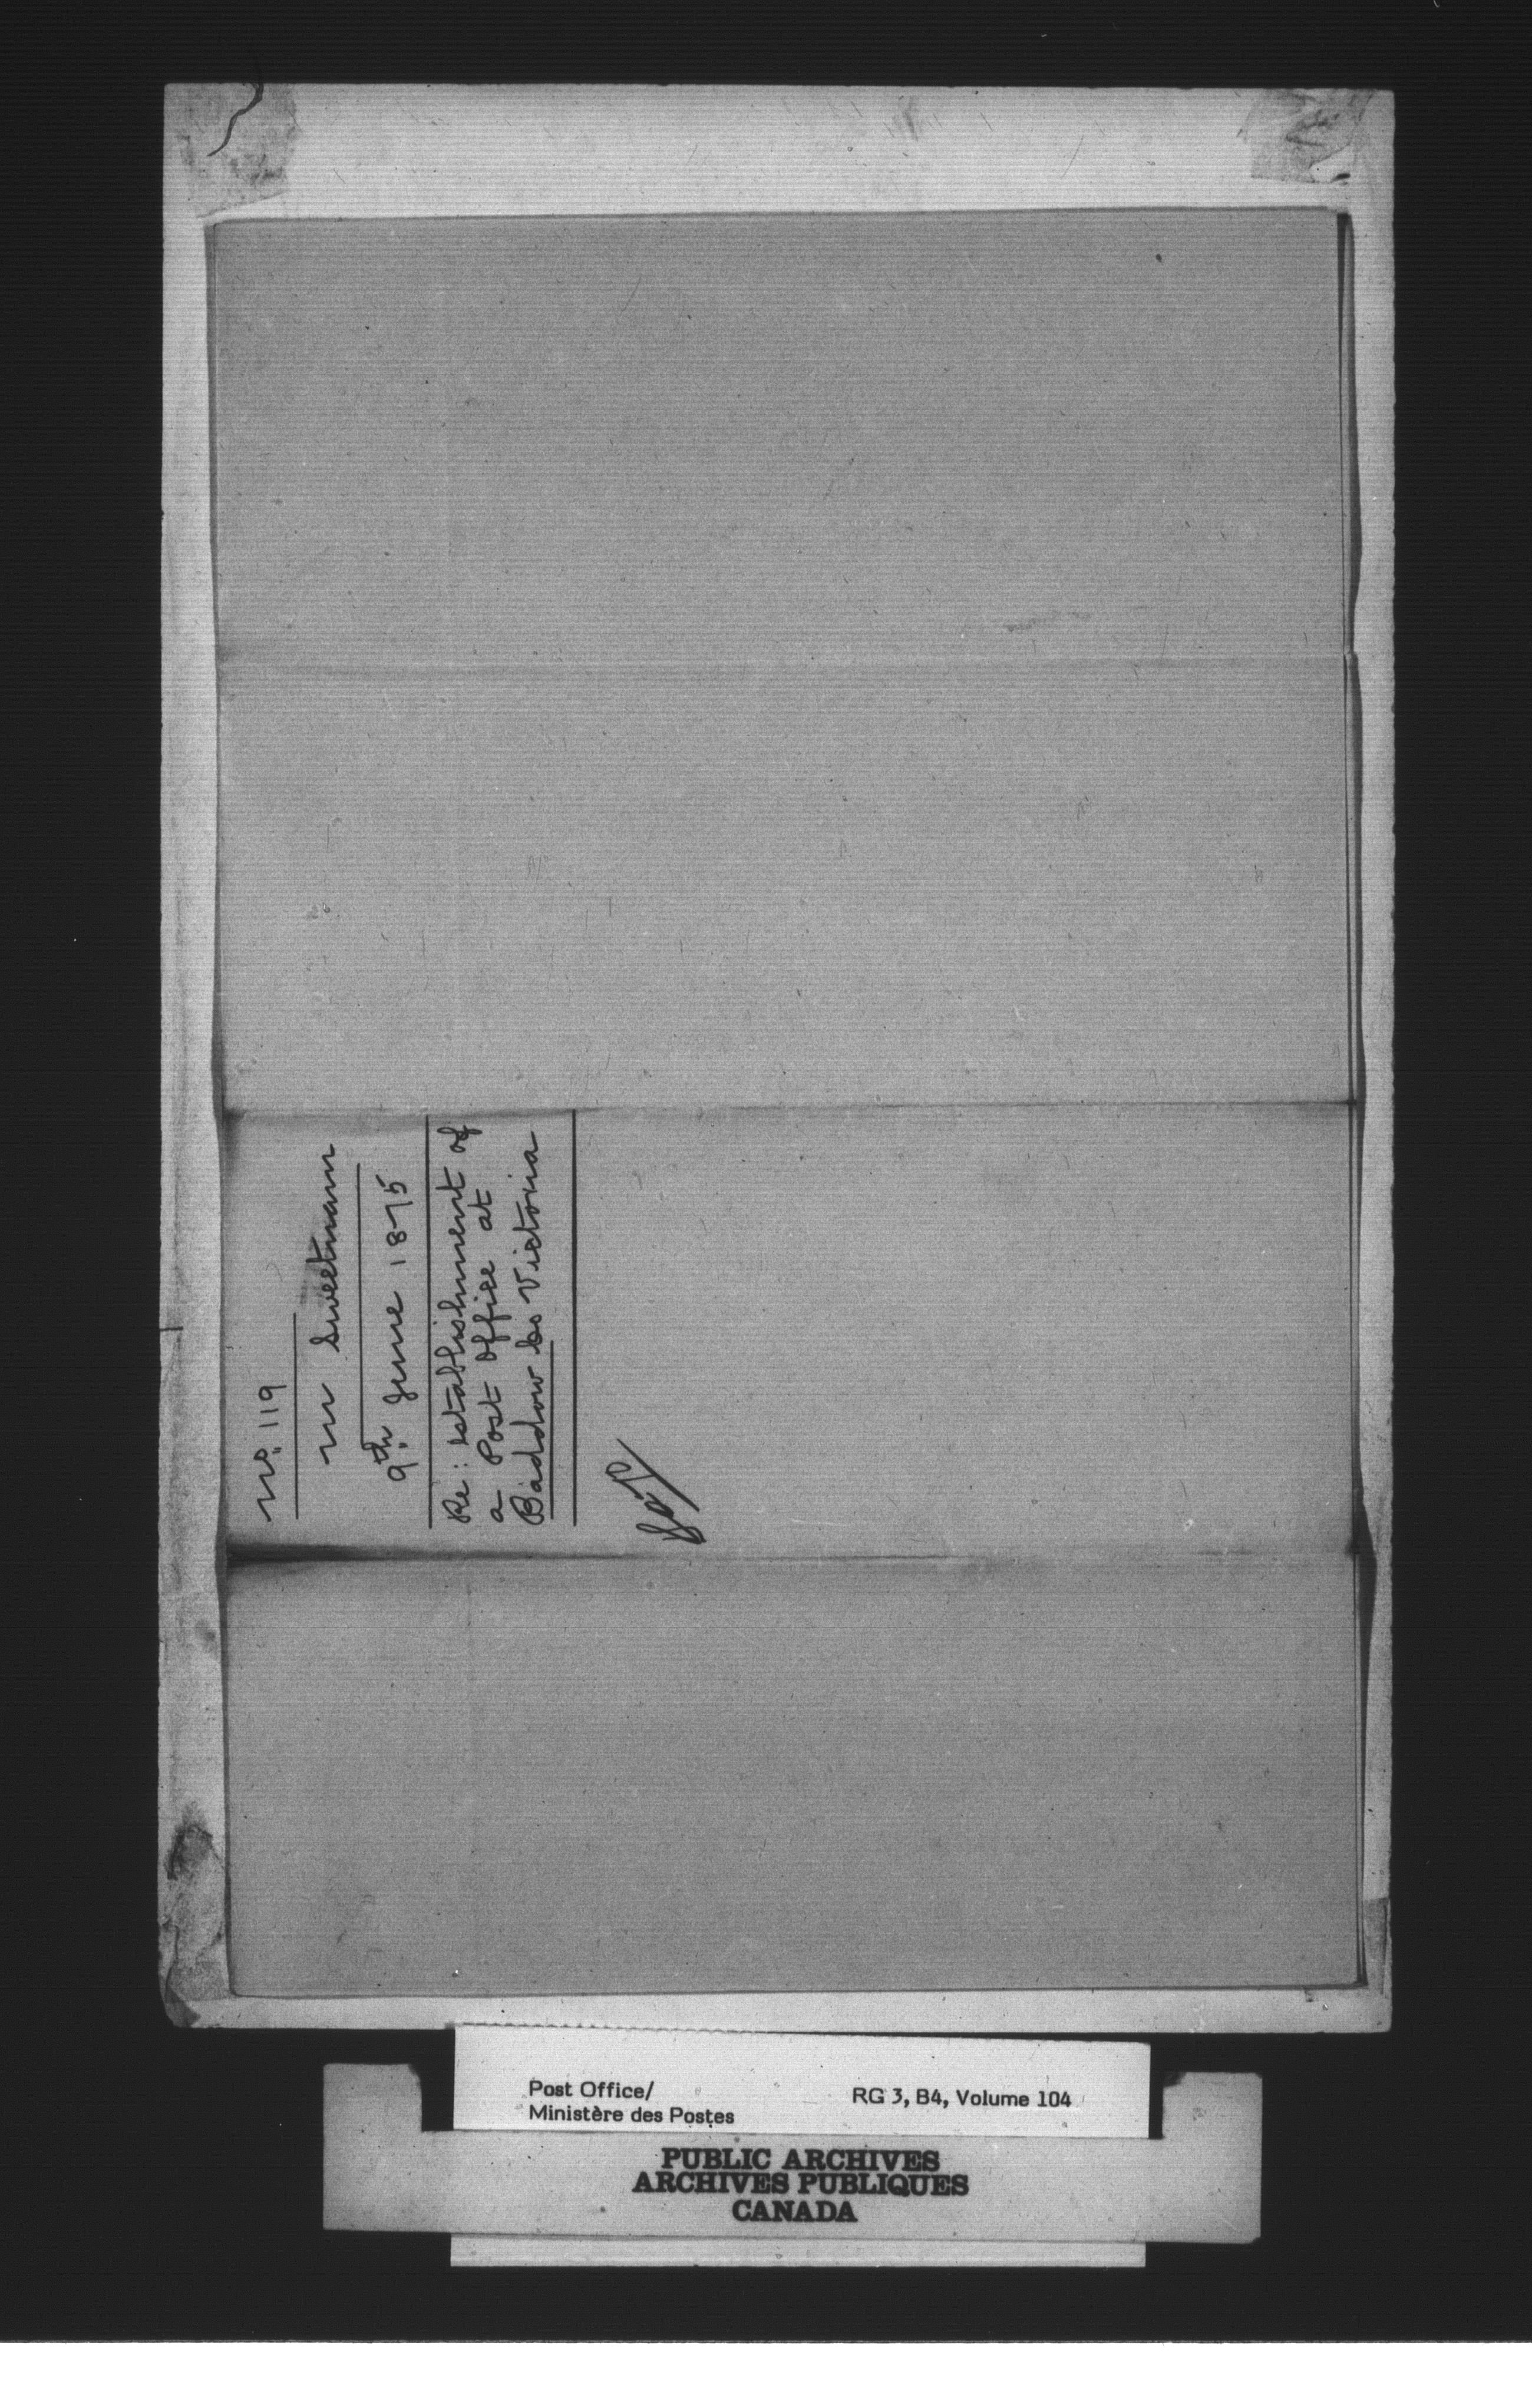 No. 119
M Sweetnam
9th. June 1875
Re: establishment of
a Post Office at
Baddow Co Victoria
Post Office/
Ministère des Postes
RG 3, B4, Volume 104
PUBLIC ARCHIVES
ARCHIVES PUBLIQUES
CANADA